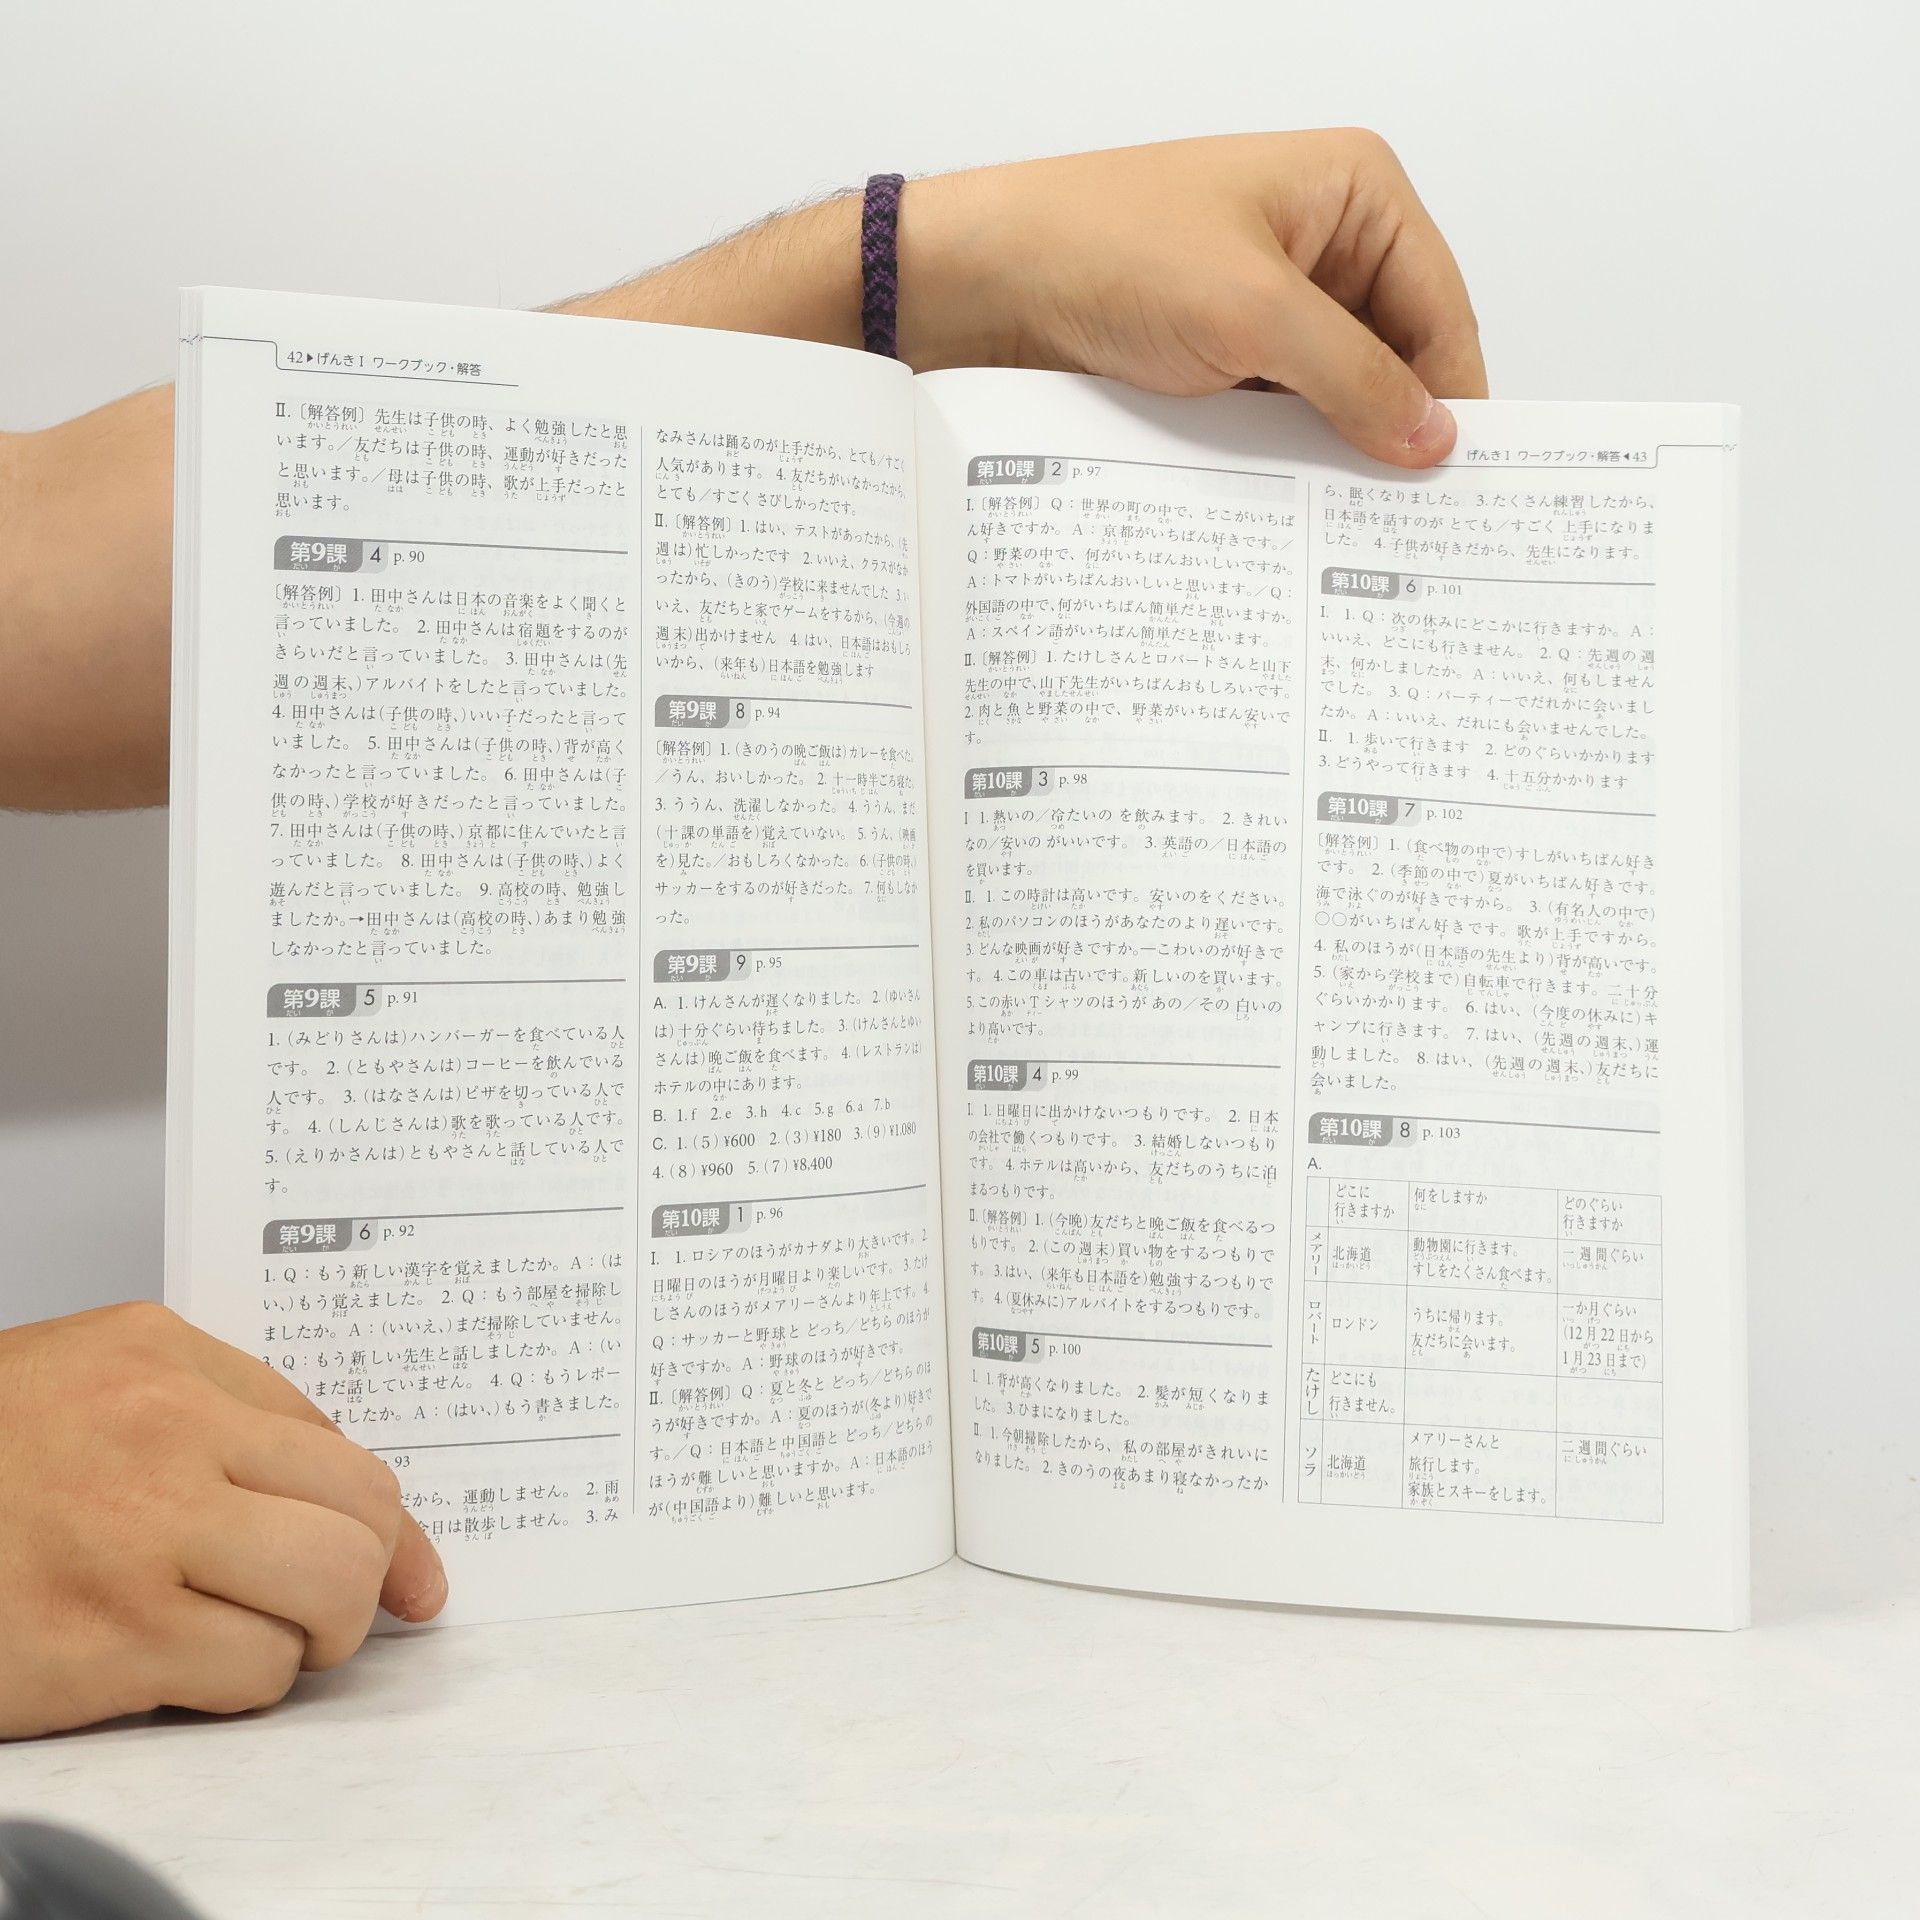 42▶げんきⅠ ワークブック・解答
Ⅱ.〔解答例〕先生は子供の時、よく勉強したと思
います。／友だちは子供の時、運動が好きだった
と思います。／母は子供の時、歌が上手だったと
思います。
第9課 4 p. 90
〔解答例〕1. 田中さんは日本の音楽をよく聞くと
言っていました。 2. 田中さんは宿題をするのが
きらいだと言っていました。 3. 田中さんは(先
週の週末、)アルバイトをしたと言っていました。
4. 田中さんは(子供の時、)いい子だったと言って
いました。 5. 田中さんは(子供の時、)背が高く
なかったと言っていました。 6. 田中さんは(子
供の時、)学校が好きだったと言っていました。
7. 田中さんは(子供の時、)京都に住んでいたと言
っていました。 8. 田中さんは(子供の時、)よく
遊んだと言っていました。 9. 高校の時、勉強し
ましたか。→田中さんは(高校の時、)あまり勉強
しなかったと言っていました。
第9課 5 p. 91
1. (みどりさんは)ハンバーガーを食べている人
です。 2. (ともやさんは)コーヒーを飲んでいる
人です。 3. (はなさんは)ピザを切っている人で
す。 4. (しんじさんは)歌を歌っている人です。
5. (えりかさんは)ともやさんと話している人で
す。
第9課 6 p. 92
1. Q：もう新しい漢字を覚えましたか。A：(は
い、)もう覚えました。 2. Q：もう部屋を掃除し
ましたか。A：(いいえ、)まだ掃除していません。
3. Q：もう新しい先生と話しましたか。A：(い
)まだ話していません。 4. Q：もうレポー
ましたか。A：(はい、)もう書きました。
p. 93
だから、運動しません。 2. 雨
今日は散歩しません。 3. み
なみさんは踊るのが上手だから、とても／すごく
人気があります。 4. 友だちがいなかったから、
とても／すごく さびしかったです。
Ⅱ.〔解答例〕1. はい、テストがあったから、(先
週は)忙しかったです 2. いいえ、クラスがなか
ったから、(きのう)学校に来ませんでした 3. い
いえ、友だちと家でゲームをするから、(今週の
週末)出かけません 4. はい、日本語はおもしろ
いから、(来年も)日本語を勉強します
第9課 8 p. 94
〔解答例〕1. (きのうの晩ご飯は)カレーを食べた。
／うん、おいしかった。 2. 十一時半ごろ寝た。
3. ううん、洗濯しなかった。 4. ううん、まだ
(十課の単語を)覚えていない。 5. うん、(映画
を)見た。／おもしろくなかった。 6. (子供の時、)
サッカーをするのが好きだった。 7. 何もしなか
った。
第9課 9 p. 95
A. 1. けんさんが遅くなりました。 2. (ゆいさん
は)十分ぐらい待ちました。 3. (けんさんとゆい
さんは)晩ご飯を食べます。 4. (レストランは)
ホテルの中にあります。
B. 1. f 2. e 3. h 4. c 5. g 6. a 7. b
C. 1. (5)¥600 2. (3)¥180 3. (9)¥1,080
4. (8)¥960 5. (7)¥8,400
第10課 1 p. 96
Ⅰ. 1. ロシアのほうがカナダより大きいです。 2.
日曜日のほうが月曜日より楽しいです。 3. たけ
しさんのほうがメアリーさんより年上です。 4.
Q：サッカーと野球と どっち／どちら のほうが
好きですか。A：野球のほうが好きです。
Ⅱ.〔解答例〕Q：夏と冬と どっち／どちら のほ
うが好きですか。A：夏のほうが(冬より)好きで
す。／Q：日本語と中国語と どっち／どちら の
ほうが難しいと思いますか。A：日本語のほう
が(中国語より)難しいと思います。
げんきⅠ ワークブック・解答◀43
第10課 2 p. 97
Ⅰ.〔解答例〕Q：世界の町の中で、どこがいちば
ん好きですか。A：京都がいちばん好きです。／
Q：野菜の中で、何がいちばんおいしいですか。
A：トマトがいちばんおいしいと思います。／Q：
外国語の中で、何がいちばん簡単だと思いますか。
A：スペイン語がいちばん簡単だと思います。
Ⅱ.〔解答例〕1. たけしさんとロバートさんと山下
先生の中で、山下先生がいちばんおもしろいです。
2. 肉と魚と野菜の中で、野菜がいちばん安いで
す。
第10課 3 p. 98
Ⅰ 1. 熱いの／冷たいの を飲みます。 2. きれい
なの／安いの がいいです。 3. 英語の／日本語の
を買います。
Ⅱ. 1. この時計は高いです。安いのをください。
2. 私のパソコンのほうがあなたのより遅いです。
3. どんな映画が好きですか。—こわいのが好きで
す。 4. この車は古いです。新しいのを買います。
5. この赤いＴシャツのほうが あの／その 白いの
より高いです。
第10課 4 p. 99
Ⅰ. 1. 日曜日に出かけないつもりです。 2. 日本
の会社で働くつもりです。 3. 結婚しないつもり
です。 4. ホテルは高いから、友だちのうちに泊
まるつもりです。
Ⅱ.〔解答例〕1. (今晩)友だちと晩ご飯を食べるつ
もりです。 2. (この週末)買い物をするつもりで
す。 3. はい、(来年も日本語を)勉強するつもりで
す。 4. (夏休みに)アルバイトをするつもりです。
第10課 5 p. 100
Ⅰ. 1. 背が高くなりました。 2. 髪が短くなりま
した。 3. ひまになりました。
Ⅱ. 1. 今朝掃除したから、私の部屋がきれいに
なりました。 2. きのうの夜あまり寝なかったか
ら、眠くなりました。 3. たくさん練習したから、
日本語を話すのが とても／すごく 上手になりま
した。 4. 子供が好きだから、先生になります。
第10課 6 p. 101
Ⅰ. 1. Q：次の休みにどこかに行きますか。A：
いいえ、どこにも行きません。 2. Q：先週の週
末、何かしましたか。A：いいえ、何もしません
でした。 3. Q：パーティーでだれかに会いまし
たか。A：いいえ、だれにも会いませんでした。
Ⅱ. 1. 歩いて行きます 2. どのぐらいかかります
3. どうやって行きます 4. 十五分かかります
第10課 7 p. 102
〔解答例〕1. (食べ物の中で)すしがいちばん好き
です。 2. (季節の中で)夏がいちばん好きです。
海で泳ぐのが好きですから。 3. (有名人の中で)
〇〇がいちばん好きです。歌が上手ですから。
4. 私のほうが(日本語の先生より)背が高いです。
5. (家から学校まで)自転車で行きます。二十分
ぐらいかかります。 6. はい、(今度の休みに)キ
ャンプに行きます。 7. はい、(先週の週末、)運
動しました。 8. はい、(先週の週末、)友だちに
会いました。
第10課 8 p. 103
A.
どこに行きますか 何をしますか どのぐらい行きますか
メアリー 北海道 動物園に行きます。すしをたくさん食べます。 一週間ぐらい
ロバート ロンドン うちに帰ります。友だちに会います。 一か月ぐらい(12月22日から1月23日まで)
たけし どこにも行きません。
ソラ 北海道 メアリーさんと旅行します。家族とスキーをします。 二週間ぐらい